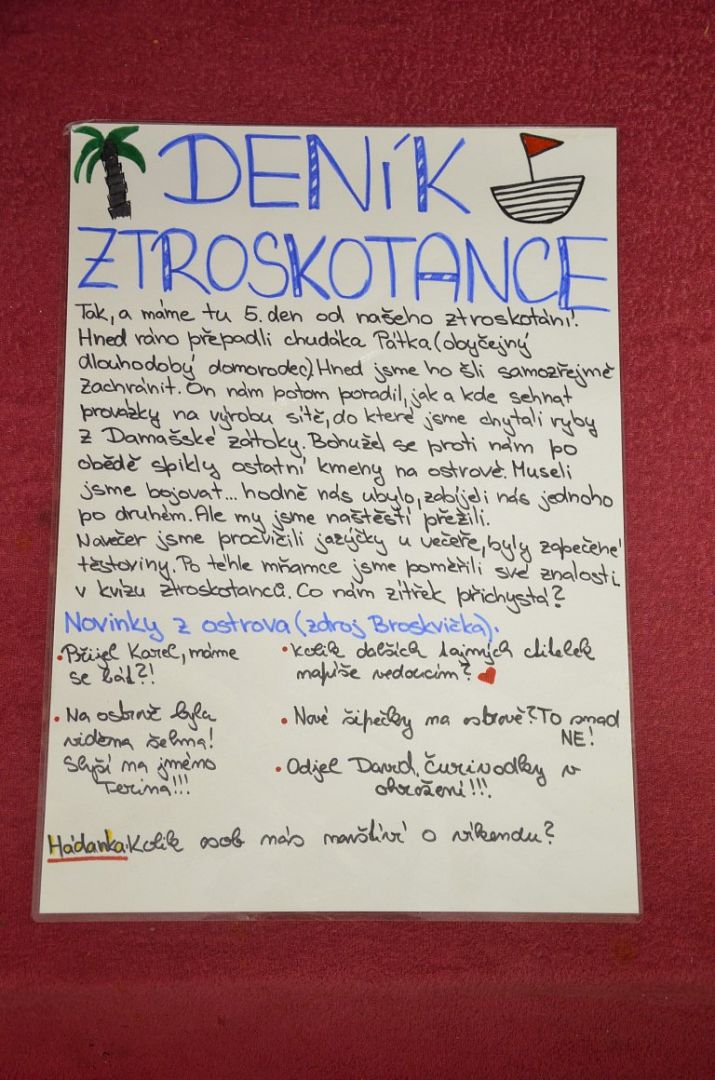 DENÍK
ZTROSKOTANCE
Tak, a máme tu 5. den od našeho ztroskotání!
Hned ráno přepadli chudáka Pátka.(obyčejný
dlouhodobý domorodec) Hned jsme ho šli samozřejmě
zachránit. On nám potom poradil, jak a kde sehnat
provázky na výrobu sítě, do které jsme chytali ryby
z Damašské zátoky. Bohužel se proti nám po
obědě spikly ostatní kmeny na ostrově. Museli
jsme bojovat... hodně nás ubylo, zabíjeli nás jednoho
po druhém. Ale my jsme naštěstí přežili.
Navečer jsme procvičili jazýčky u večeře, byly zapečené
těstoviny. Po téhle mňamce jsme poměřili své znalosti
v kvízu ztroskotanců. Co nám zítřek přichystá?
Novinky z ostrova (zdroj Broskvička).
• Přijel Karel, máme
se bát?!
• Na ostrově byla
viděna šelma!
Slyší na jméno
Terina!!!
• Kolik dalších tajných ctitelek
napíše vedoucím?
• Nové šipečky na ostrově? TO snad
NE!
• Odjel David. Čurivodky v
ohrožení!!!
Hádanka: Kolik osob nás navštíví o víkendu?